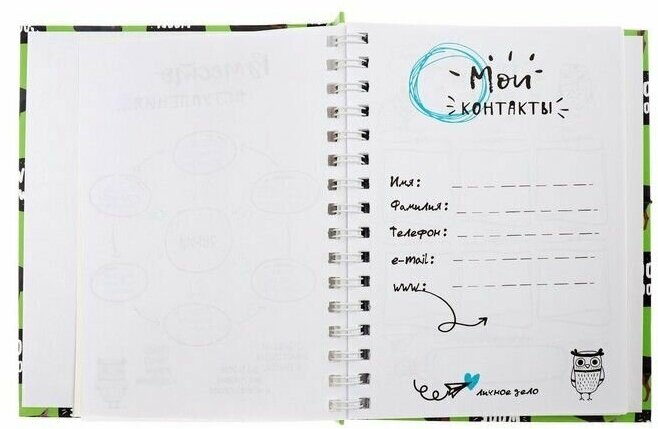 Мои
контакты
Имя:
Фамилия:
Телефон:
e-mail:
www:
личное дело